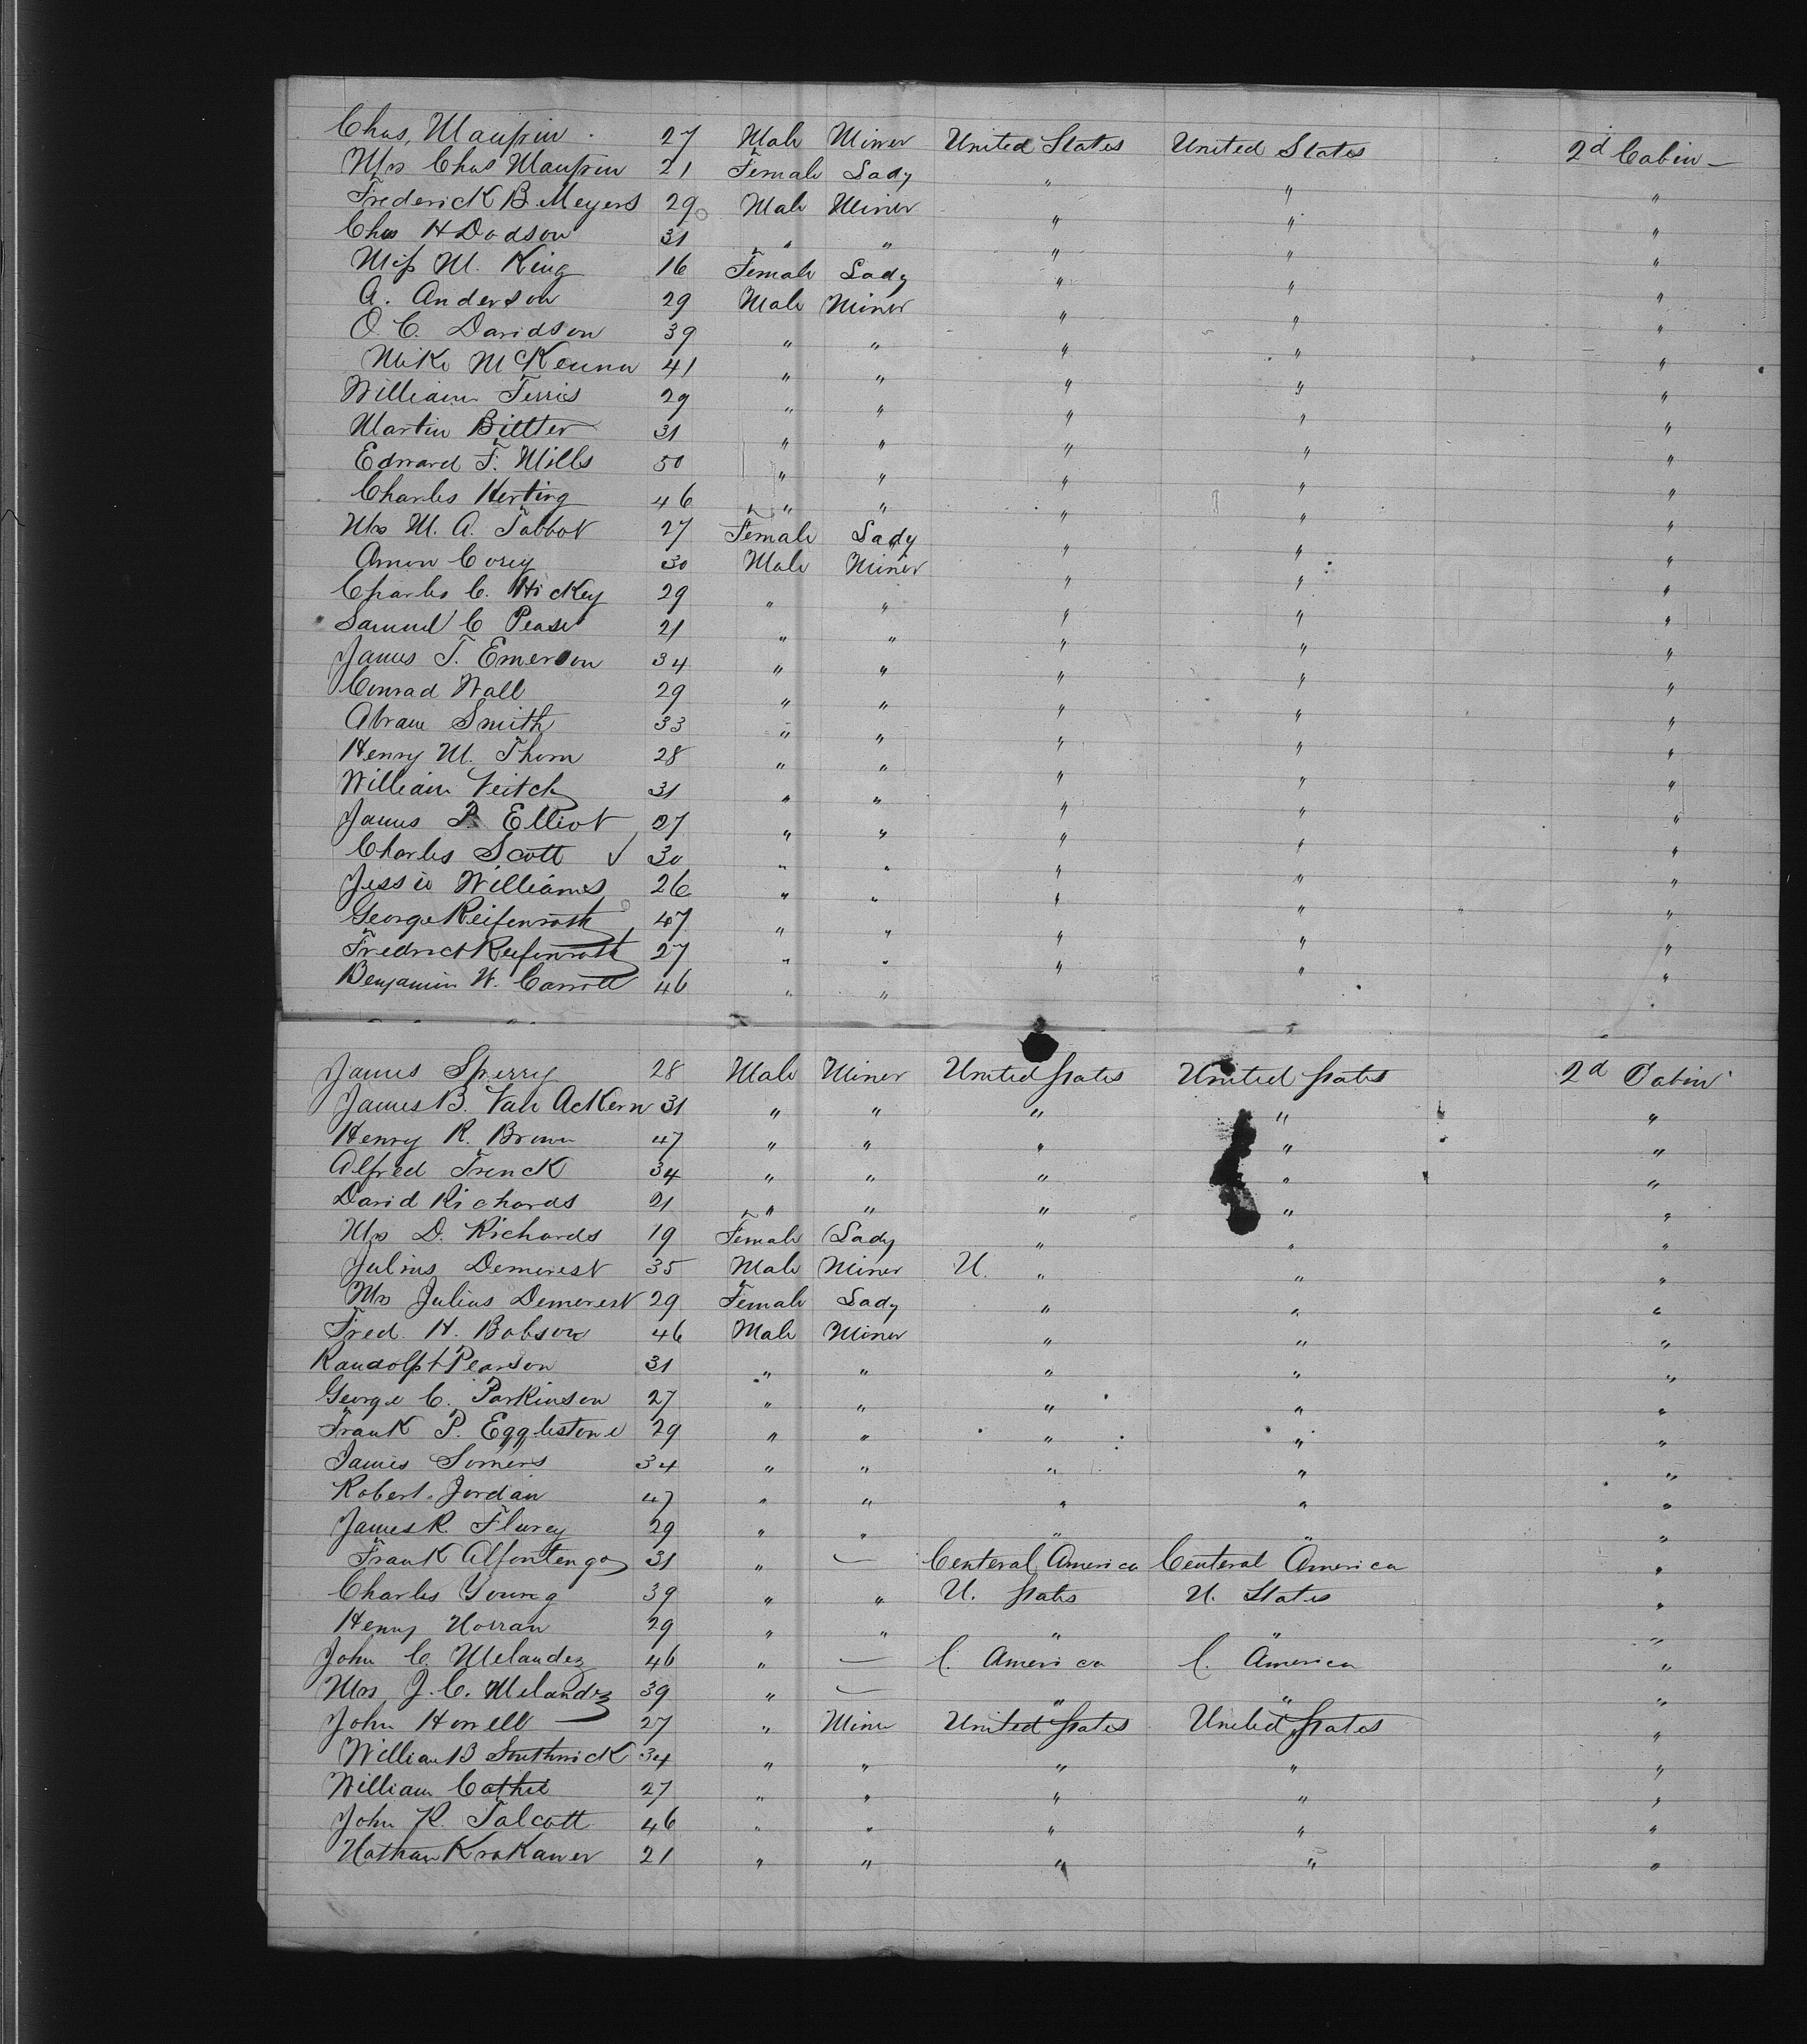 Chas, Maupin 27 Male Miner United States United States 2d Cabin
Mrs Chas Maupin 21 Female Lady " " "
Frederick B. Meyers 29 Male Miner " " "
Chas H Dodson 31 " " " " "
Miss M. King 16 Female Lady " " "
A. Anderson 29 Male Miner " " "
O. C. Davidson 39 " " " " "
Mike McKenna 41 " " " " "
William Ferris 29 " " " " "
Martin Bittter 31 " " " " "
Edward F. Mills 50 " " " " "
Charles Herting 46 " " " " "
Mrs M. A. Talbot 27 Female Lady " " "
Amon Corey 30 Male Miner " " "
Charles C. Hickey 29 " " " " "
Samuel C Pease 21 " " " " "
James T. Emerson 34 " " " " "
Conrad Wall 29 " " " " "
Abram Smith 33 " " " " "
Henry M. Thorn 28 " " " " "
William Veitch 31 " " " " "
James P. Elliot 27 " " " " "
Charles Scott ✓ 30 " " " " "
Jessie Williames 26 " " " " "
George Reifenrath 47 " " " " "
Fredrick Reifenrath 27 " " " " "
Benjamin W. Carroll 46 " "
James Sperry 28 Male Miner United States United States 2d Cabin
James B. Van Ackern 31 " " " " "
Henry R. Brown 47 " " " " "
Alfred Trenck 34 " " " " "
David Richards 21 " " " " "
Mrs D. Richards 19 Female Lady " " "
Julius Demerest 35 Male Miner U. " " "
Mrs Julius Demerest 29 Female Lady " " "
Fred. H. Bobson 46 Male Miner " " "
Randolph Pearson 31 " " " " "
George C. Parkinson 27 " " " " "
Frank P. Egglestone 29 " " " " "
James Somers 34 " " " " "
Robert Jordan 47 " " " " "
James R. Flurey 29 " " " " "
Frank Alfontengo 31 " — Centeral America Centeral America "
Charles Young 39 " " U. States U. States "
Henry Horran 29 " " " " "
John C. Melandez 46 " — C. America C. America "
Mrs J. C. Melandez 39 " — " " "
John Howell 27 " Mine United States United States "
William B Southwick 34 " " " " "
William Cathie 27 " " " " "
John R. Talcott 46 " " " " "
Nathan Krakauer 21 " " " " "